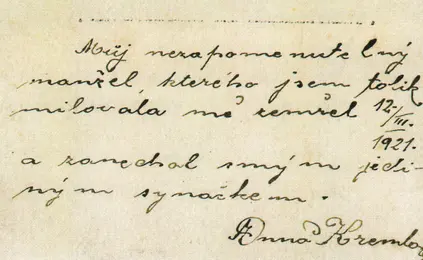 Můj nezapomenutelný
manžel, kterého jsem tolik
milovala mě zemřel 12./III. 1921.
a zanechal smým jedi-
ným synáčkem.
Anna Kremlov